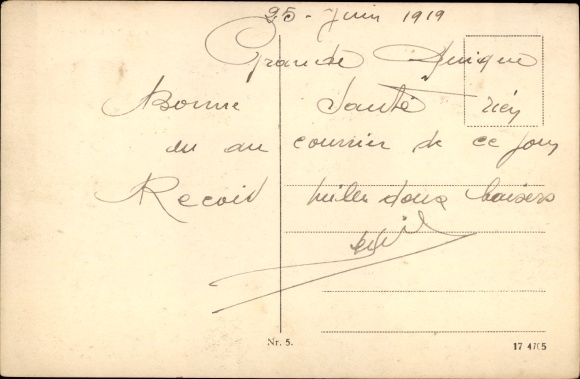 25 - Juin 1919
Grande Unique
Bonne Santé rien
eu au courrier de ce jour
Recoit mille doux baisers
Nr. 5.
17 4765